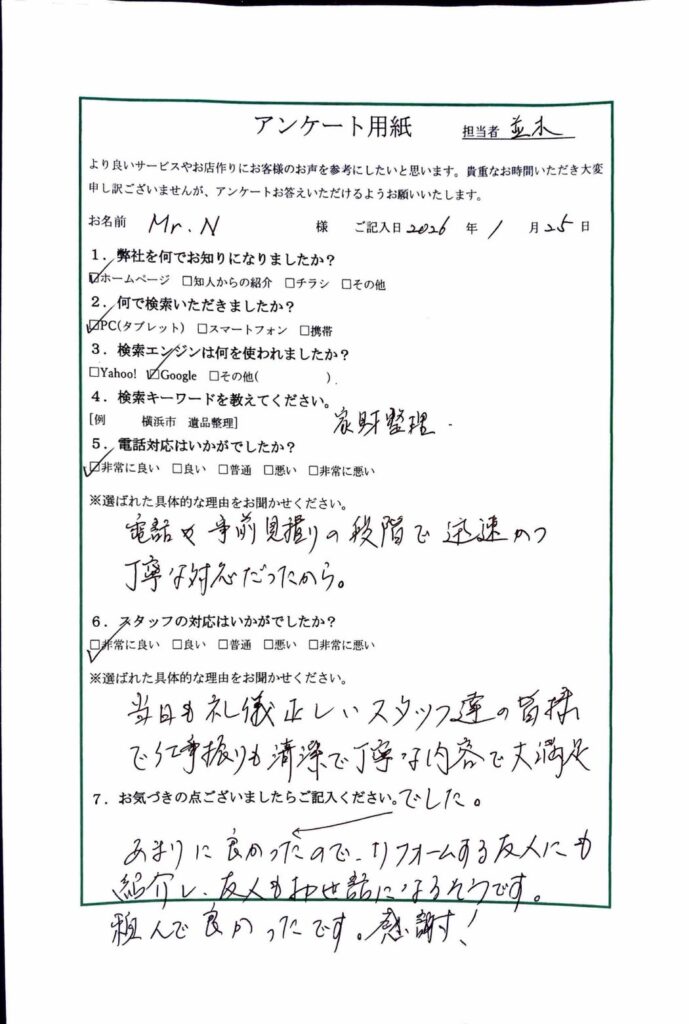 アンケート用紙 担当者 並木
より良いサービスやお店作りにお客様のお声を参考にしたいと思います。貴重なお時間いただき大変
申し訳ございませんが、アンケートお答えいただけるようお願いいたします。
お名前 Mr. N 様 ご記入日 2026 年 1 月 25 日
1．弊社を何でお知りになりましたか?
☑ホームページ □知人からの紹介 □チラシ □その他
2．何で検索いただきましたか?
☑PC(タブレット) □スマートフォン □携帯
3．検索エンジンは何を使われましたか?
□Yahoo! ☑Google □その他( )
4．検索キーワードを教えてください。
[例 横浜市 遺品整理] 家財整理
5．電話対応はいかがでしたか?
☑非常に良い □良い □普通 □悪い □非常に悪い
※選ばれた具体的な理由をお聞かせください。
電話や事前見積りの段階で迅速かつ
丁寧な対応だったから。
6．スタッフの対応はいかがでしたか?
☑非常に良い □良い □普通 □悪い □非常に悪い
※選ばれた具体的な理由をお聞かせください。
当日も礼儀正しいスタッフ達の皆様
で仕事振りも清潔で丁寧な内容で大満足
7．お気づきの点ございましたらご記入ください。でした。
あまりに良かったので、リフォームする友人にも
紹介し、友人もお世話になるそうです。
頼んで良かったです。感謝!